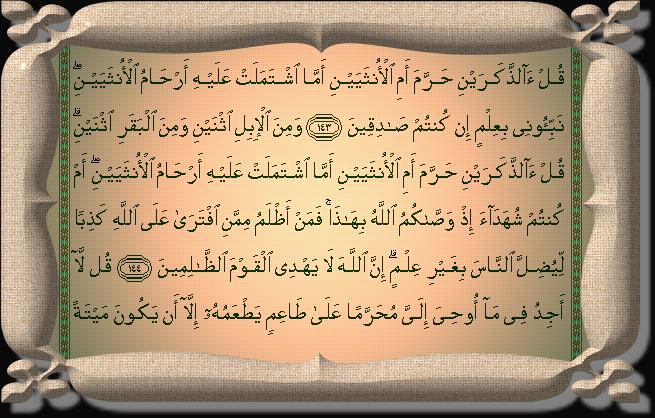 قُلْ ءَآلذَّكَرَيْنِ حَرَّمَ أَمِ ٱلْأُنثَيَيْنِ أَمَّا ٱشْتَمَلَتْ عَلَيْهِ أَرْحَامُ ٱلْأُنثَيَيْنِ ۖ
نَبِّـُٔونِى بِعِلْمٍ إِن كُنتُمْ صَـٰدِقِينَ ١٤٣ وَمِنَ ٱلْإِبِلِ ٱثْنَيْنِ وَمِنَ ٱلْبَقَرِ ٱثْنَيْنِ ۗ
قُلْ ءَآلذَّكَرَيْنِ حَرَّمَ أَمِ ٱلْأُنثَيَيْنِ أَمَّا ٱشْتَمَلَتْ عَلَيْهِ أَرْحَامُ ٱلْأُنثَيَيْنِ ۖ أَمْ
كُنتُمْ شُهَدَآءَ إِذْ وَصَّىٰكُمُ ٱللَّهُ بِهَـٰذَا ۚ فَمَنْ أَظْلَمُ مِمَّنِ ٱفْتَرَىٰ عَلَى ٱللَّهِ كَذِبًا
لِّيُضِلَّ ٱلنَّاسَ بِغَيْرِ عِلْمٍ ۗ إِنَّ ٱللَّهَ لَا يَهْدِى ٱلْقَوْمَ ٱلظَّـٰلِمِينَ ١٤٤ قُل لَّآ
أَجِدُ فِى مَآ أُوحِىَ إِلَىَّ مُحَرَّمًا عَلَىٰ طَاعِمٍ يَطْعَمُهُۥٓ إِلَّآ أَن يَكُونَ مَيْتَةً